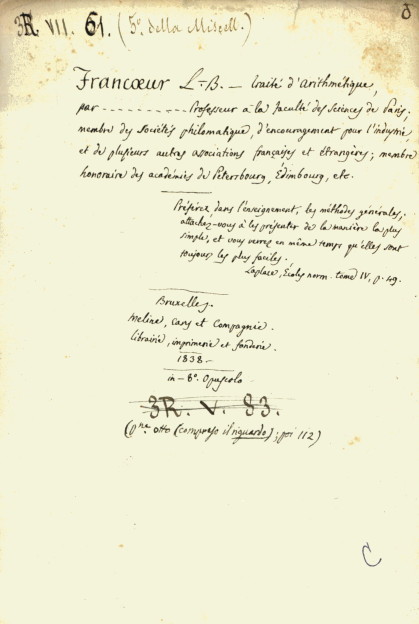 3R. VII. 61. (5º. della Miscell.)
8
Francœur L-B. — traité d'arithmétique,
par - - - - - - - - - - Professeur à la faculté des Sciences de Paris;
membre des Sociétés philomatique, d'encouragement pour l'industrie,
et de plusieurs autres associations françaises et étrangères; membre
honoraire des académies de Pétersbourg, Édimbourg, etc.
Préférez, dans l'enseignement, les méthodes générales;
attachez-vous à les présenter de la manière la plus
simple, et vous verrez en même temps qu'elles sont
toujours les plus faciles.
Laplace, Écoles norm. tome IV, p. 49.
Bruxelles.
Meline, Cans et Compagnie.
Librairie, imprimerie et fonderie.
1838 —
in-8º. Opuscolo
3R. V. 83.
(pne otto (compreso il riguardo); poi 112)
C